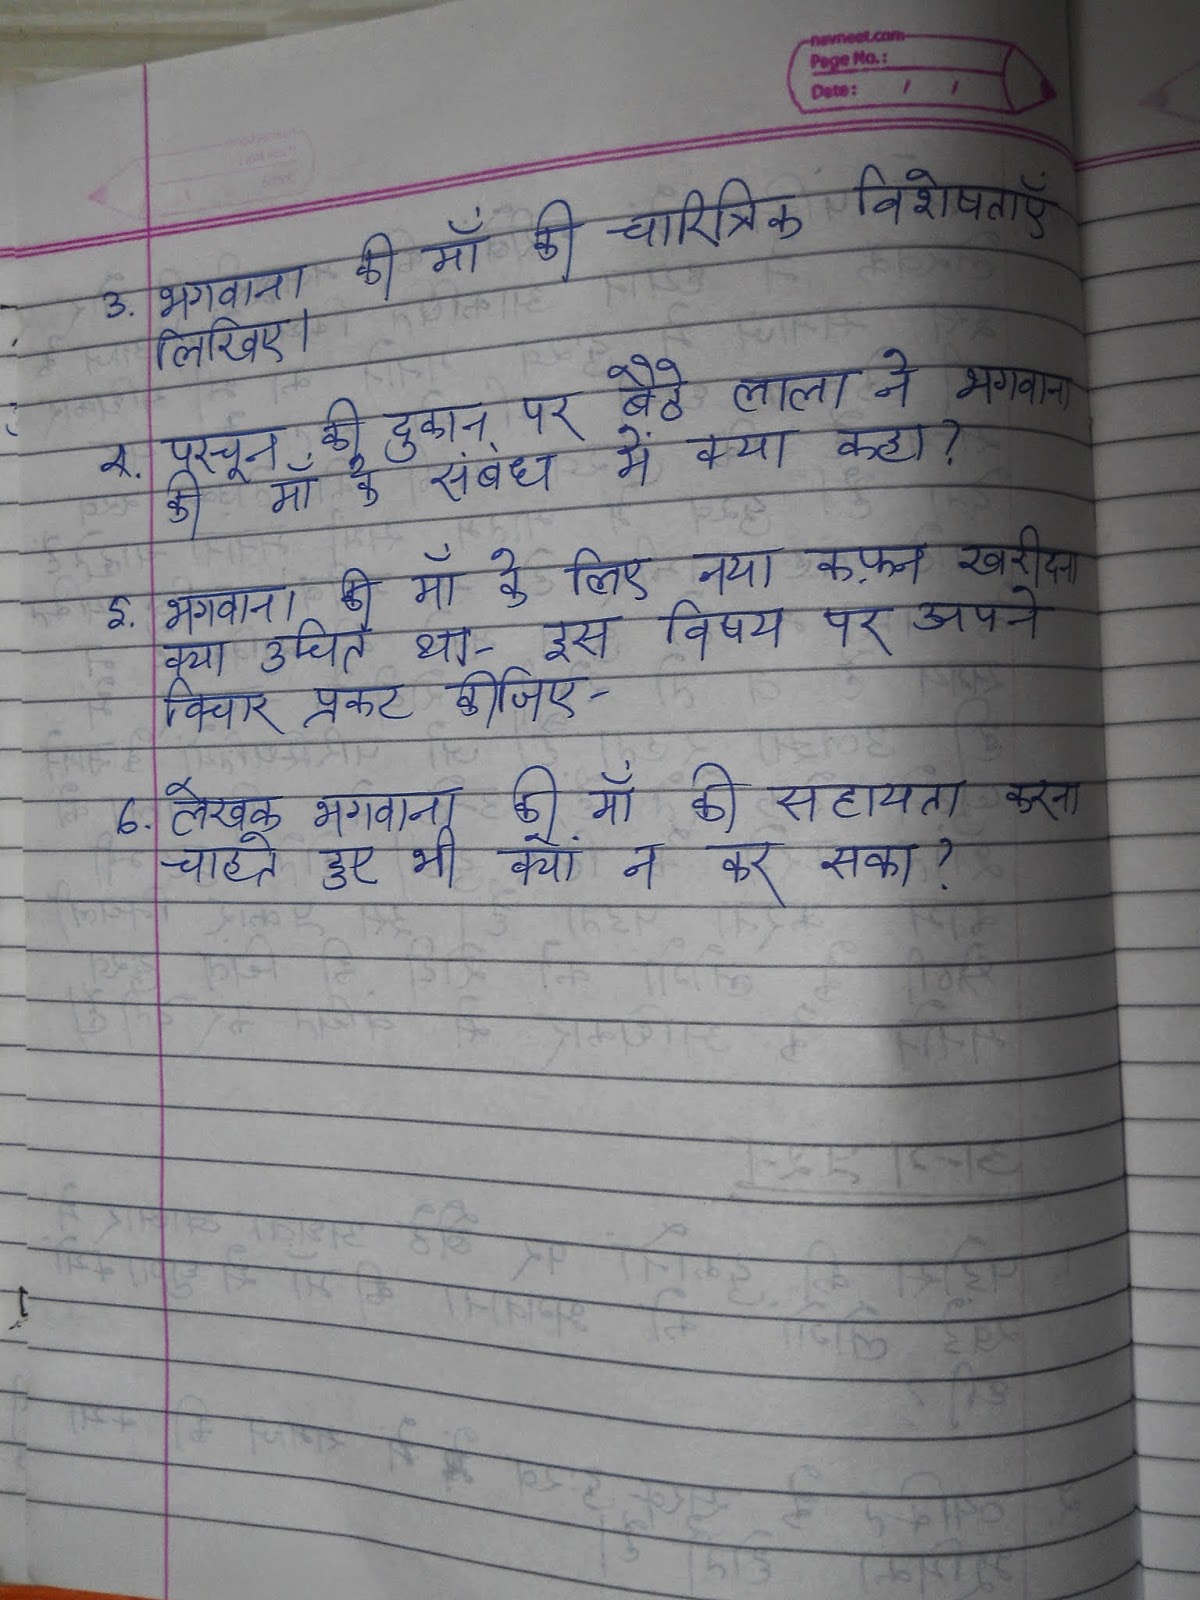 navneet.com
Page No.:
Date: / /
3. भगवाना की माँ की चारित्रिक विशेषताएँ
लिखिए।
4. परचून की दुकान पर बैठे लाला ने भगवाना
की माँ के संबंध में क्या कहा?
5. भगवाना की माँ के लिए नया कफ़न खरीदना
क्या उचित था- इस विषय पर अपने
विचार प्रकट कीजिए-
6. लेखक भगवाना की माँ की सहायता करना
चाहते हुए भी क्यों न कर सका?